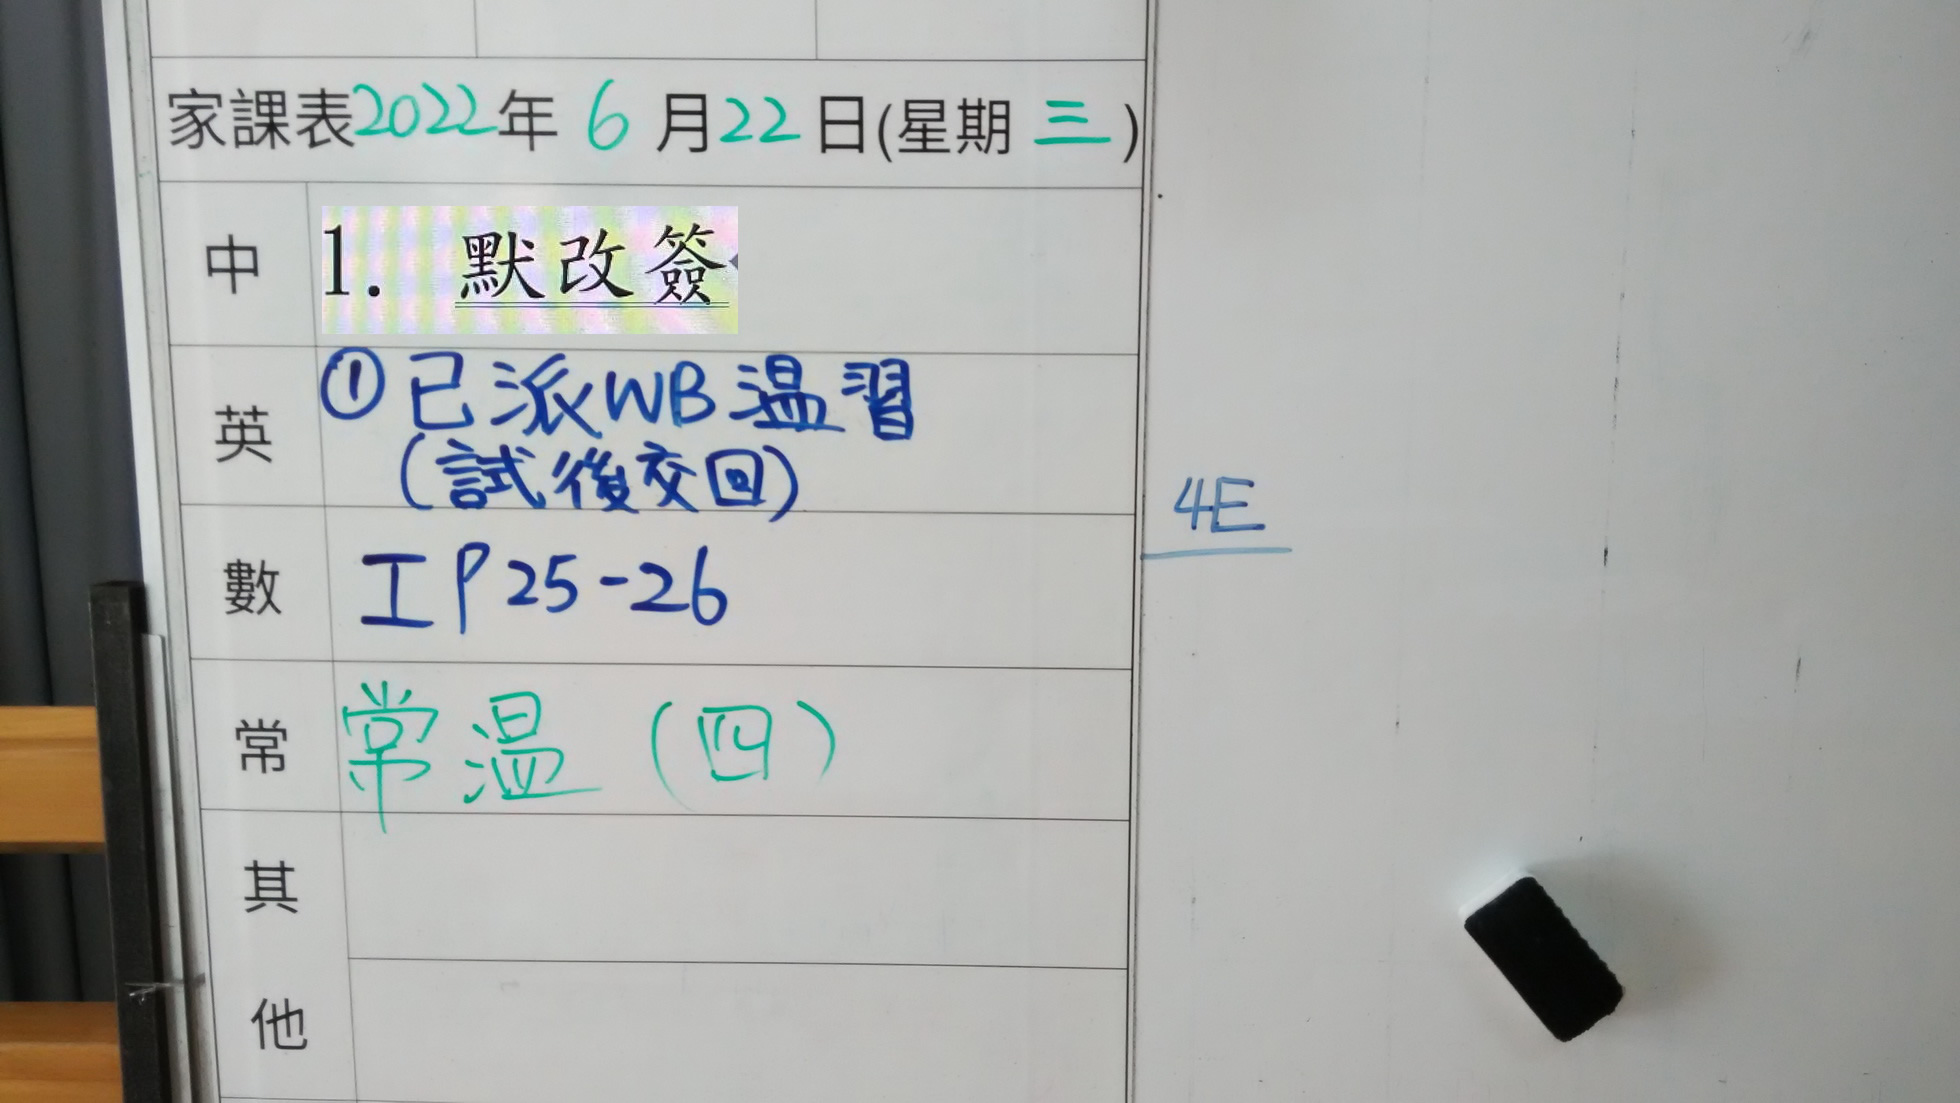 家課表2022年 6 月22日(星期 三)
中
1. 默改簽
英
① 已派WB温習
(試後交回)
數
工 P 25-26
常
常温 (四)
其
他
4E